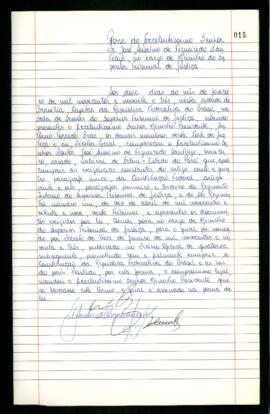 015
Posse do Excelentíssimo Senhor
Dr. José Anselmo de Figueiredo San-
tiago, no cargo de Ministro do Su-
perior Tribunal de Justiça
Aos dias do mês de
ro de mil novecentos e noventa e três nesta cidade de
Brasília, Capital da República Federativa do Brasil, na
Sala de Sessões do Superior Tribunal de Justiça, estando
presentes o Excelentíssimo Senhor Ministro Presidente,
e os demais membros desta Corte de Jus-
tiça e eu, Diretor Geral, compareceu o Excelentíssimo Se-
nhor Doutor José Anselmo de Figueiredo Santiago, brasilei-
ro, casado, natural de Belém - Estado do Pará que, após
cumprir as exigências constantes do artigo cento e qua-
tro parágrafo único, da Constituição Federal, artigo
vinte e oito parágrafos primeiro e terceiro do Regimento
Interno do Superior Tribunal de Justiça, e do Ato Regimen-
tal número um, de de abril de mil novecentos e
noventa e um, deste Tribunal, e apresentar os documen-
tos exigidos por lei, tomou posse no cargo de Ministro
do Superior Tribunal de Justiça, para o qual foi nomea-
do por Decreto de treze de janeiro de mil novecentos e no-
venta e três, publicado no Diário Oficial de quatorze
subsequente, prometendo bem e fielmente cumprir a
Constituição da República Federativa do Brasil e as leis
do país. Prestado, por esta forma, o compromisso legal,
mandou o Excelentíssimo Senhor Ministro Presidente que
se lavrasse este termo, o qual é assinado na forma da
lei